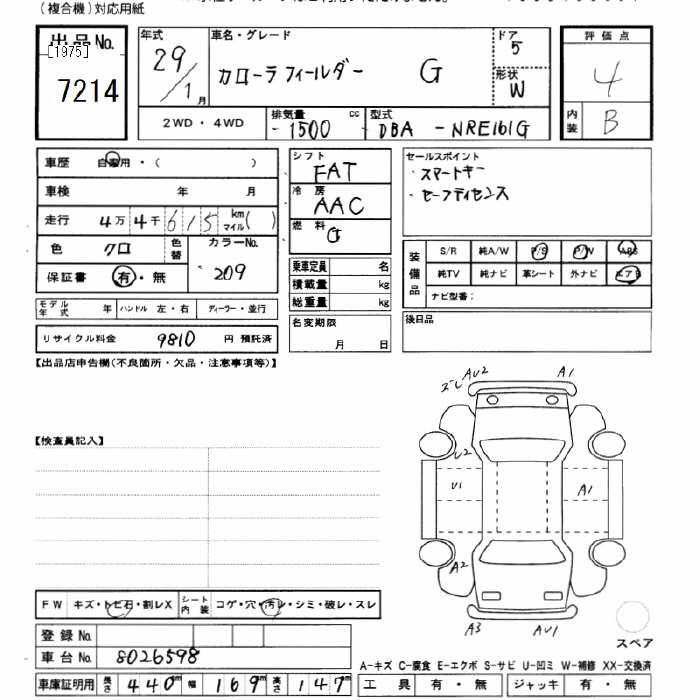 (複合機)対応用紙
出品No.
[1975]
7214
年式 29/1月
車名・グレード カローラ フィールダー G
ドア 5
形状 W
評価点 4
内装 B
2WD・4WD
排気量 1500 cc
型式 DBA-NRE161G
車歴 自家用・( )
車検 年 月
走行 4万4千615 kmマイル( )
色 クロ 色替
カラーNo. 209
保証書 有・無
モデル年式 年 ハンドル 左・右 ディーラー・並行
リサイクル料金 9810 円 預託済
シフト FAT
冷房 AAC
燃料 G
乗車定員 名
積載量 kg
総重量 kg
名変期限 月 日
セールスポイント
・スマートキー
・セーフティセンス
装備品 S/R 純A/W P/S P/W ABS
純TV 純ナビ 革シート 外ナビ エアB
ナビ型番:
後日品
【出品店申告欄(不良箇所・欠品・注意事項等)】
【検査員記入】
ズレ AU2 A1
U2
U1 A1
A2
A3 AU1
スペア
FW キズ・トビ石・割レX シート内装 コゲ・穴・汚レ・シミ・破レ・スレ
登録No.
車台No. 8026598
車庫証明用 長さ 440m 幅 169m 高さ 147m
A-キズ C-腐食 E-エクボ S-サビ U-凹ミ W-補修 XX-交換済
工具 有・無 ジャッキ 有・無